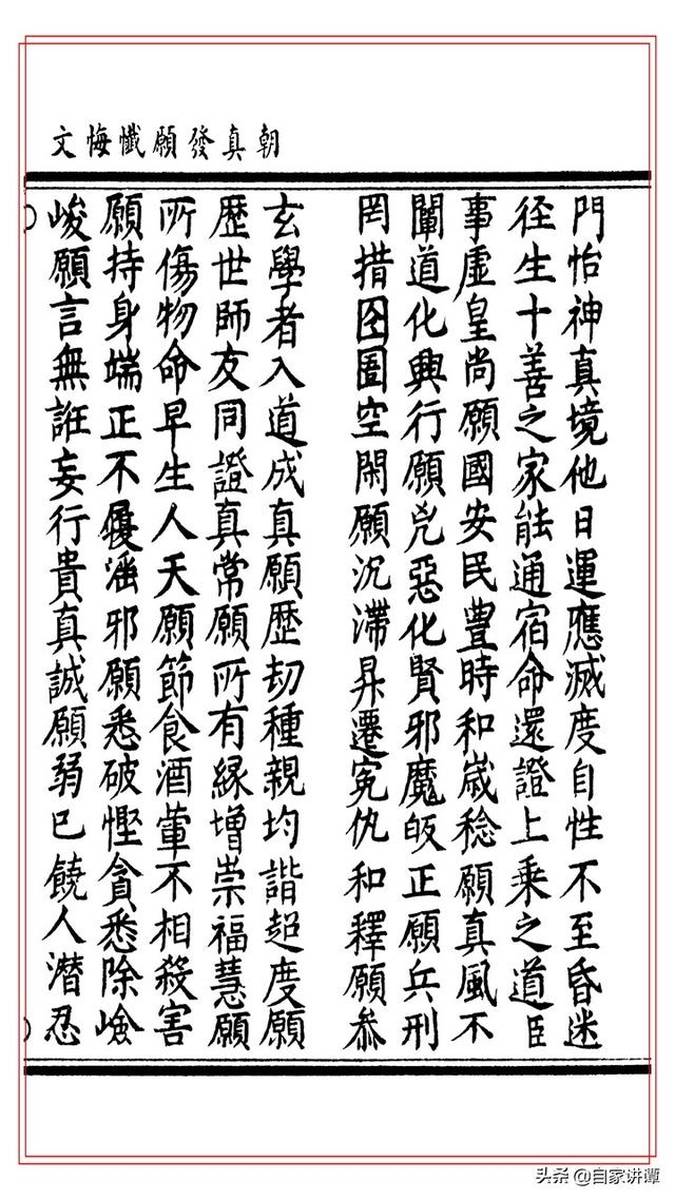 朝真發願懺悔文
門怡神真境他日運應滅度自性不至昏迷
径生十善之家能通宿命還證上乘之道臣
事虛皇尚願國安民豊時和歲稔願真風不
闡道化興行願兇惡化賢邪魔皈正願兵刑
罔措囹圄空閑願沉滯昇遷冤仇和釋願叅
玄學者入道成真願歷劫種親均諧超度願
歷世師友同證真常願所有緣增崇福慧願
所傷物命早生人天願節食酒葷不相殺害
願持身端正不履滛邪願悉破慳貪悉除嶮
峻願言無誑妄行貴真誠願弱已饒人潛忍
头条 @自家讲谭